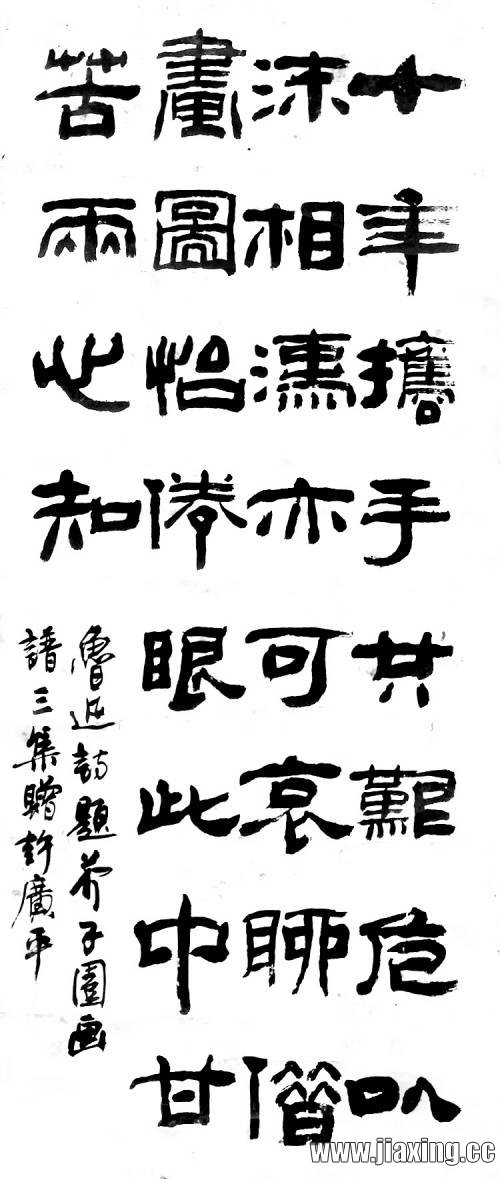 十年攜手共艱危以
沫相濡亦可哀聊借
畫圖怡倦眼此中甘
苦兩心知
魯迅詩題芥子園画
譜三集贈許廣平
www.jiaxing.cc